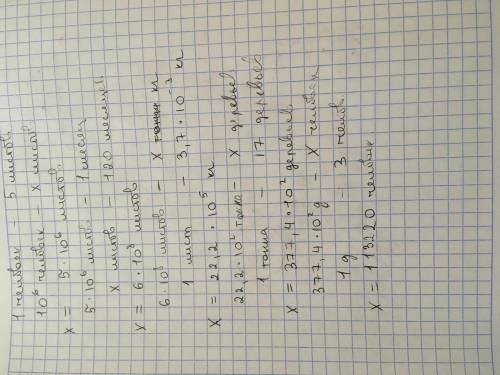 1 человек – 5 листов
10⁶ человек – x листов
x = 5·10⁶ листов.
5·10⁶ листов – 1 месяц
x листов – 120 месяцев.
x = 6·10⁸ листов
6·10⁸ листов – x кг
1 лист – 3,7·10⁻³ кг
x = 22,2·10⁵ кг
22,2·10² тонна – x деревьев
1 тонна – 17 деревьев
x = 377,4·10² деревьев.
377,4·10² g – x человек
1 g – 3 челов.
x = 113220 человек